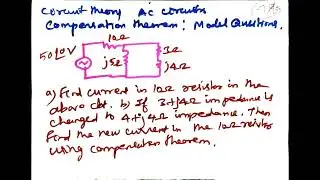 Circuit theory Ac circuits
Compensation theorem: Model Questions.
10Ω
50∠0V
j5Ω
3Ω
j4Ω
a) Find current in 10Ω resistor in the
above ckt. b) If 3+j4Ω impedance is
changed to 4+j4Ω impedance. Then
find the new current in the 10Ω resistor
using compensation theorem.